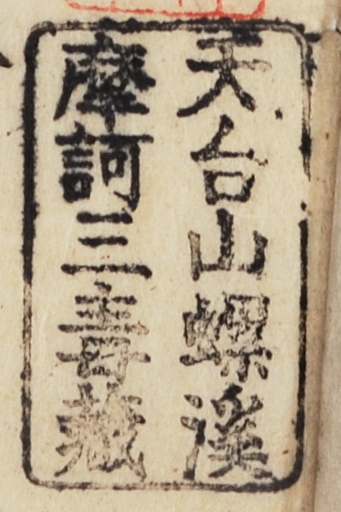 天台山螺溪
摩訶三壽藏